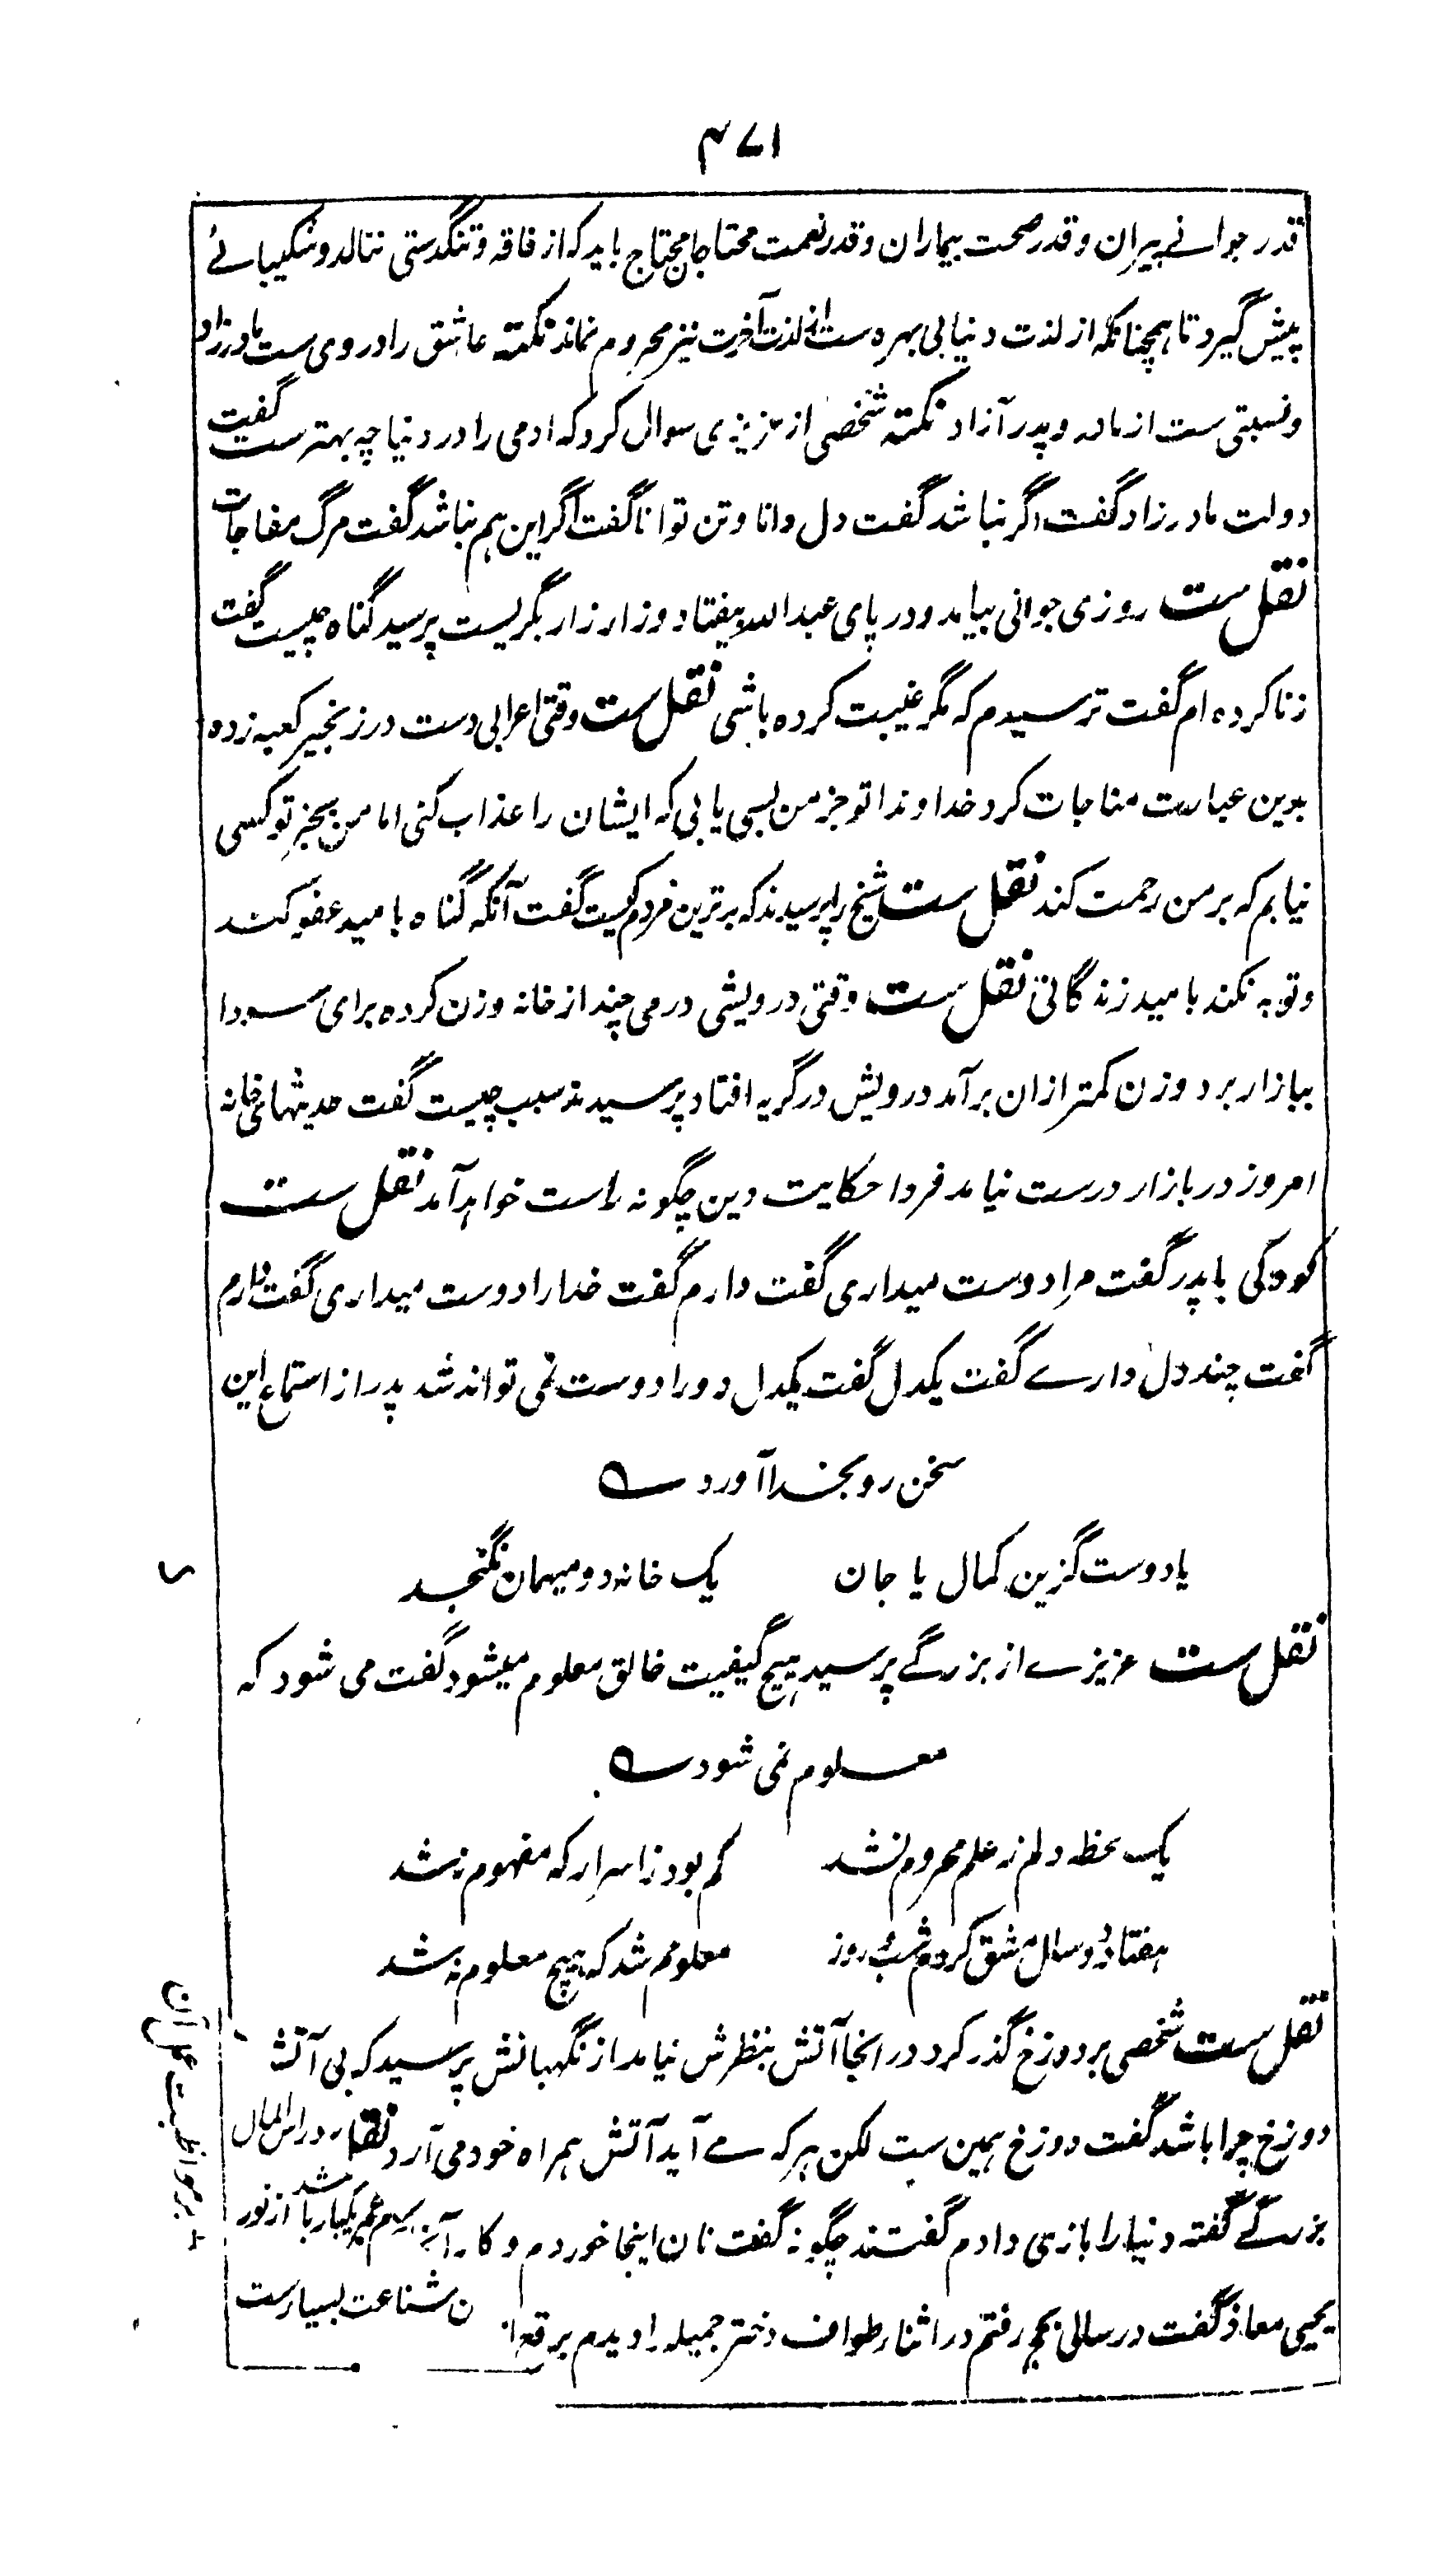 ۴۷۱
قدر جوانے پیران و قدر صحت بیماران و قدر نعمت محتاجان محتاج باید که از فاقه و تنگدستی ننالد و شکیبائے
پیش گیرد تا همچنانکه از لذت دنیا بی بهره ست از لذت آخرت نیز محروم نماند نکته عاشق را در وی ست مادرزاد
و نسبتی ست از مادر و پدر آزاد نکته شخصی از عزیزی سوال کرد که ادمی را در دنیا چه بهترست گفت
دولت مادرزاد گفت اگر نباشد گفت دل دانا و تن توانا گفت اگر این هم نباشد گفت مرگ مفاجات
نقل ست روزی جوانی بیامد و در پای عبدالله بیفتاد و زار زار بگریست پرسید گناه چیست گفت
زنا کرده ام گفت ترسیدم که مگر غیبت کرده باشی نقل ست وقتی اعرابی دست در زنجیر کعبه زده
بدین عبارت مناجات کرد خداوندا تو جز من بسی یابی که ایشان را عذاب کنی اما من بجز تو کسی
نیابم که بر من رحمت کند نقل ست شیخ را پرسیدند که بدترین مردم کیست گفت آنکه گناه بامید عفو کند
و توبه نکند بامید زندگانی نقل ست وقتی درویشی درمی چند از خانه وزن کرده برای سودا
ببازار برد وزن کمتر ازان برآمد درویش در گریه افتاد پرسیدند سبب چیست گفت حدیثهای خانه
امروز در بازار درست نیامد فردا حکایت دین چگونه راست خواهد آمد نقل ست
کودکی با پدر گفت مرا دوست میداری گفت دارم گفت خدا را دوست میداری گفت دارم
گفت چند دل دارے گفت یکدل گفت یکدل دو را دوست نمی تواند شد پدر از استماع این
سخن رو بخدا آورد ؎
یا دوست گزین کمال یا جان یک خانه دو میهمان نگنجد
نقل ست عزیزے از بزرگے پرسید هیچ کیفیت خالق معلوم میشود گفت می شود که
معلوم نمی شود ؎
یک لحظه دلم ز علم محروم نشد کم بود ز اسرار که مفهوم نشد
هفتاد و دو سال مشق کردم شب و روز معلومم شد که هیچ معلوم نشد
نقل ست شخصی بر دوزخ گذر کرد در انجا آتش بنظرش نیامد از نگهبانش پرسید که بی آتش
دوزخ چرا باشد گفت دوزخ همین ست لکن هر که مے آید آتش همراه خود می آرد راس المال
بزرگے گفته دنیا را بازی دادم گفتند چگونه گفت نان اینجا خوردم و کار از نور
یحیی معاذ گفت در سالی بحج رفتم در اثنار طواف دختر جمیله را دیدم برقع شناعت بسیارست